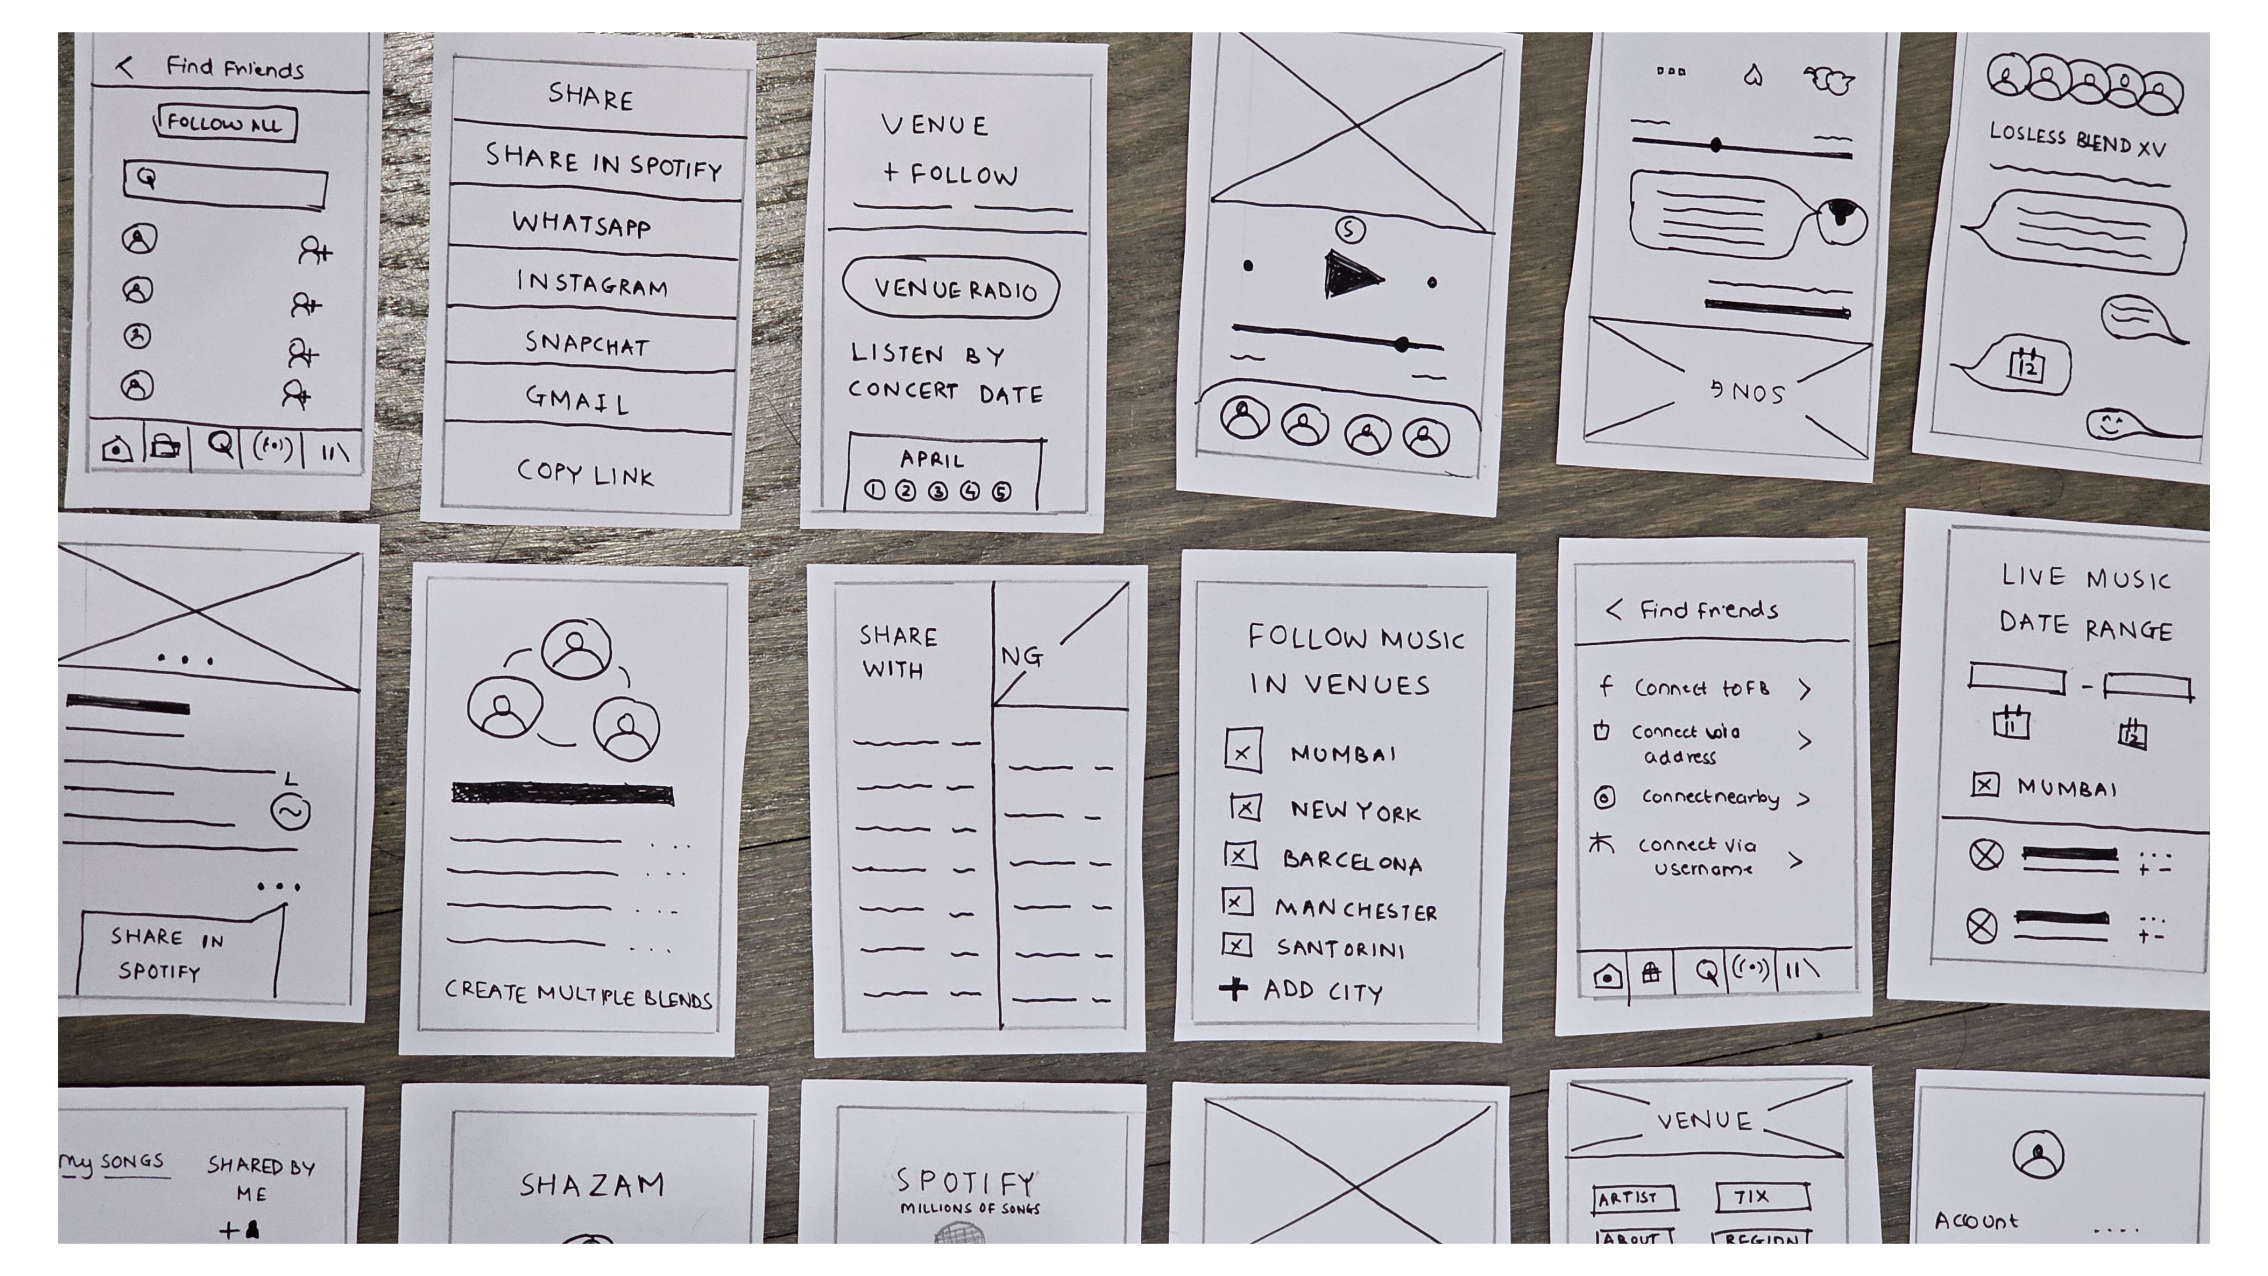 < Find Friends
FOLLOW ALL
SHARE
SHARE IN SPOTIFY
WHATSAPP
INSTAGRAM
SNAPCHAT
GMAIL
COPY LINK
VENUE
+ FOLLOW
VENUE RADIO
LISTEN BY
CONCERT DATE
APRIL
1 2 3 4 5
S
SONG
LOSLESS BLEND XV
12
L
SHARE IN
SPOTIFY
CREATE MULTIPLE BLENDS
SHARE
WITH
NG
FOLLOW MUSIC
IN VENUES
MUMBAI
NEW YORK
BARCELONA
MANCHESTER
SANTORINI
+ ADD CITY
< Find friends
f Connect to FB >
Connect via
address >
Connect nearby >
Connect via
username >
LIVE MUSIC
DATE RANGE
11 12
MUMBAI
+ -
+ -
My SONGS
SHARED BY
ME
+
SHAZAM
SPOTIFY
MILLIONS OF SONGS
VENUE
ARTIST TIX
ABOUT REGION
Account